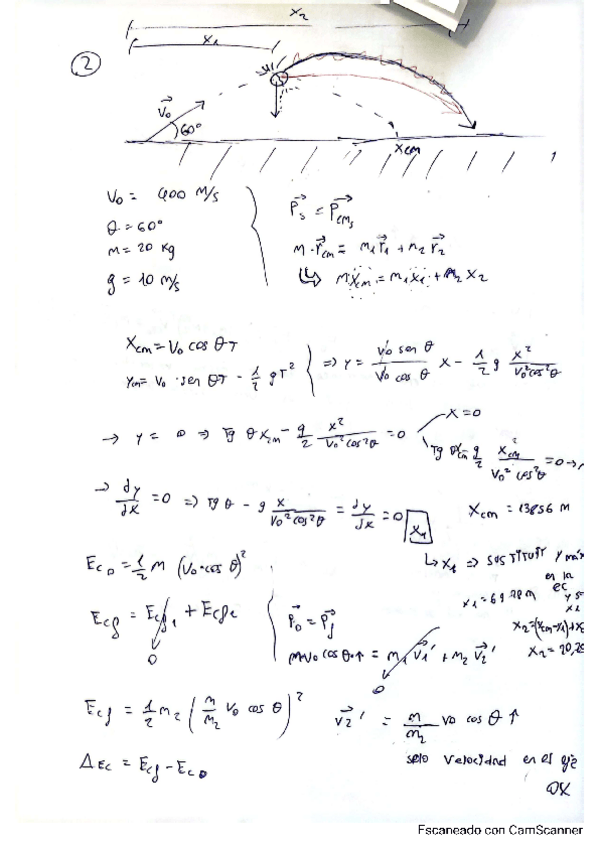 x2
x1
②
V⃗o
60°
xcm
Vo = 400 M/s
θ = 60°
m = 20 Kg
g = 10 m/s
P⃗s = P⃗cms
M · r⃗cm = m1 r⃗1 + m2 r⃗2
↳ M xcm = m1 x1 + m2 x2
Xcm = Vo cos θT
Ycm = Vo · sen θT - 1/2 gT²
=> Y = Vo sen θ / Vo cos θ x - 1/2 g x² / Vo² cos² θ
→ y = 0 => Tg θ xcm - g/2 x² / Vo² cos² θ = 0
X = 0
Tg θxcm - g/2 xcm² / Vo² cos² θ = 0 →
→ dy/dx = 0 => Tg θ - g x / Vo² cos² θ = dy/dx = 0 x1
Xcm = 13856 M
↳ x1 => sustituir y máx
en la
ec
x1 = 6928 m
Eco = 1/2 m (Vo · cos θ)²
Ecf = Ecf1 + Ecf2
0
P⃗o = P⃗f
m vo cos θ · ↑ = m1 v⃗1' + m2 v⃗2'
0
x2 = 20,78
Ecf = 1/2 m2 (m/m2 vo cos θ)²
v⃗2' = m/m2 vo cos θ ↑
solo velocidad en el eje
OX
ΔEc = Ecf - Eco
Escaneado con CamScanner